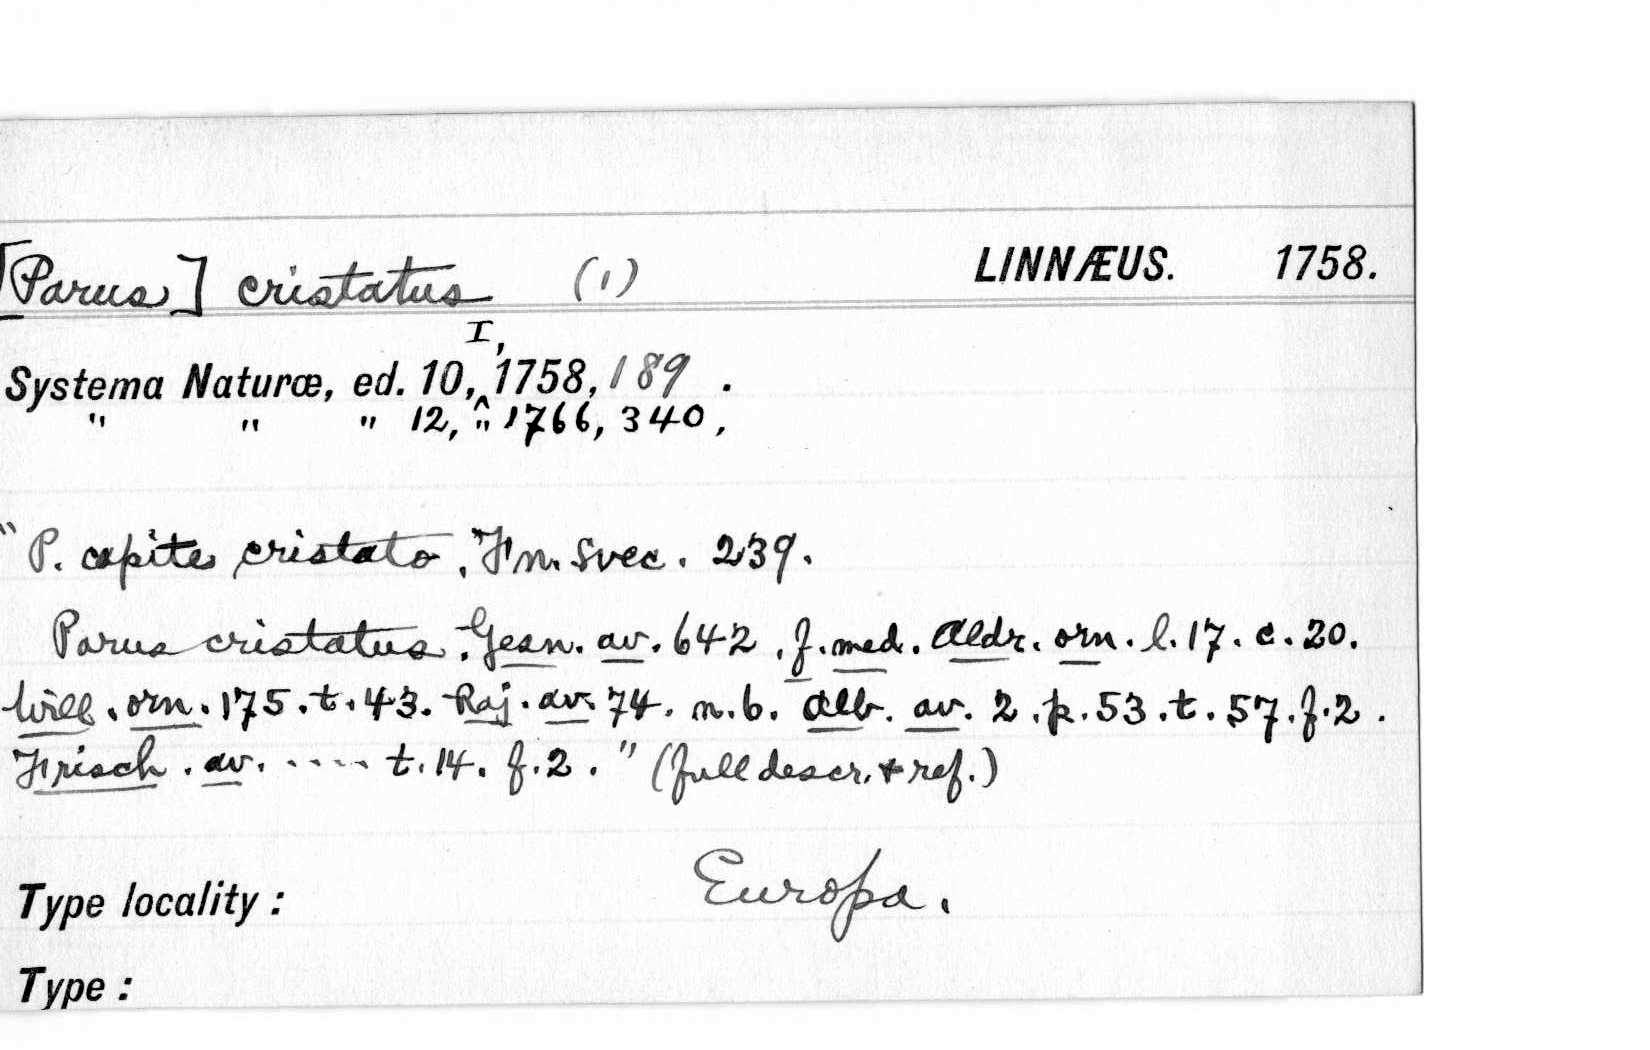 [Parus] cristatus (1) LINNÆUS. 1758.
I,
Systema Naturæ, ed. 10,^1758, 189.
" " " 12, " 1766, 340,
"P. capite cristato. Fn. Svec. 239.
Parus cristatus. Gesn. av. 642. f. med. Aldr. orn. l. 17. c. 20.
Will. orn. 175. t. 43. Raj. av. 74. n. 6. Alb. av. 2. p. 53. t. 57. f. 2.
Frisch. av. .... t. 14. f. 2." (full descr. & ref.)
Type locality: Europa.
Type: